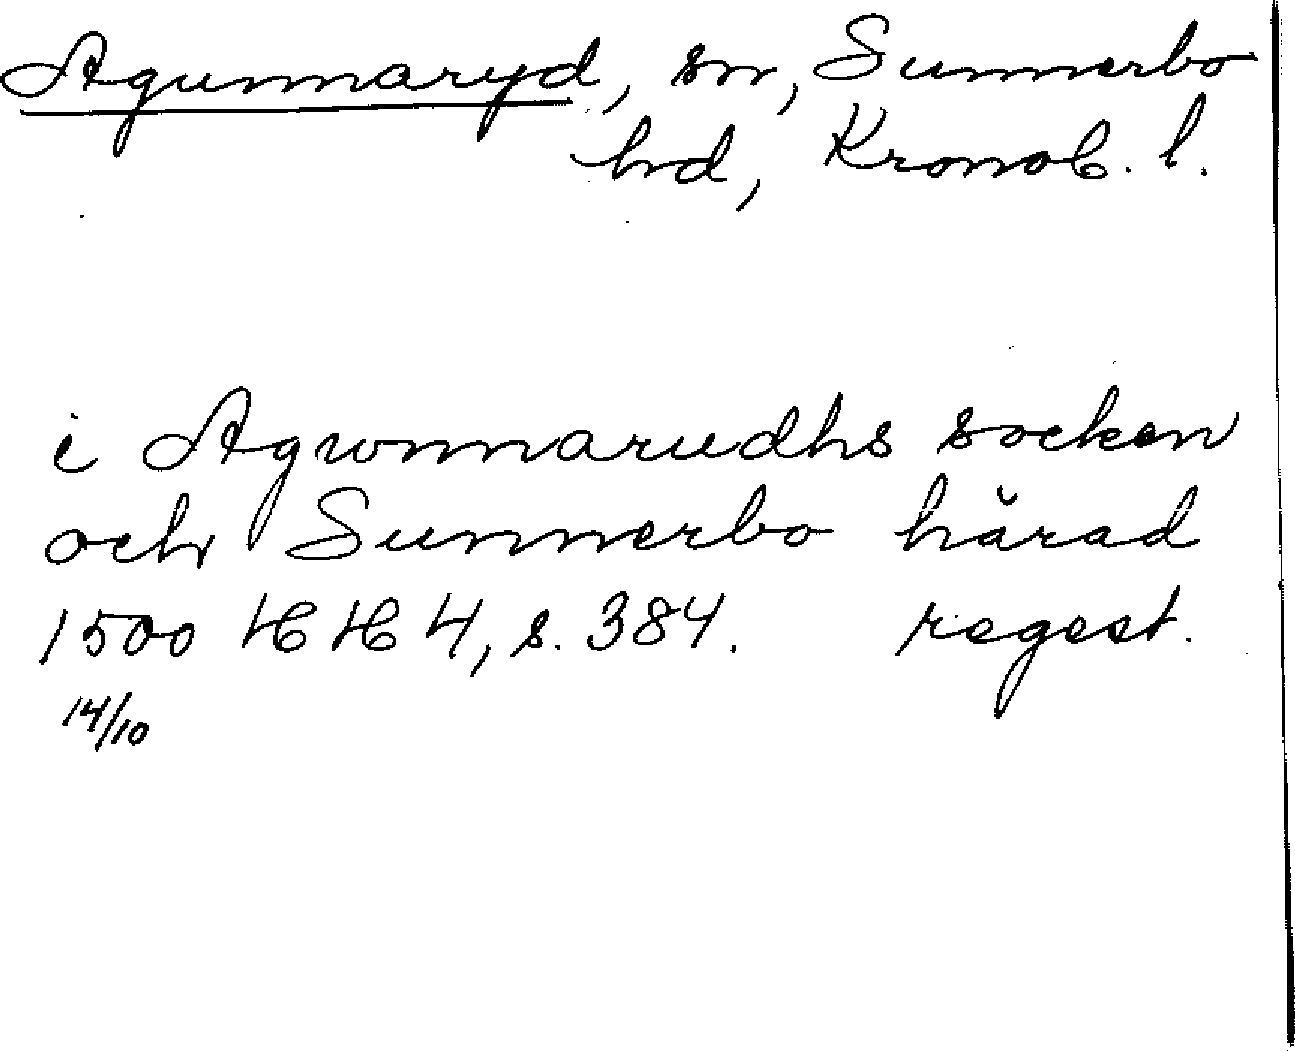 Agunnaryd, sn, Sunnerbo
hd, Kronob. l.
i Agwnnarudhs socken
och Sunnerbo härad
1500 HH 4, s. 384. regest.
14/10